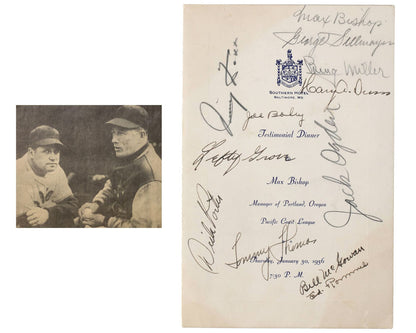 Max Bishop
George Sellmayer
Bing Miller
Jimmy Foxx
SOUTHERN HOTEL
BALTIMORE, MD.
Joe Boley
Jack Ogden
Testimonial Dinner
Lefty Grove
Max Bishop
Manager of Portland, Oregon
Pacific Coast League
Dick Porter
Tommy Thomas
Thursday, January 30, 1936
7:30 P. M.
Bill McGowan
Ed. Rommel